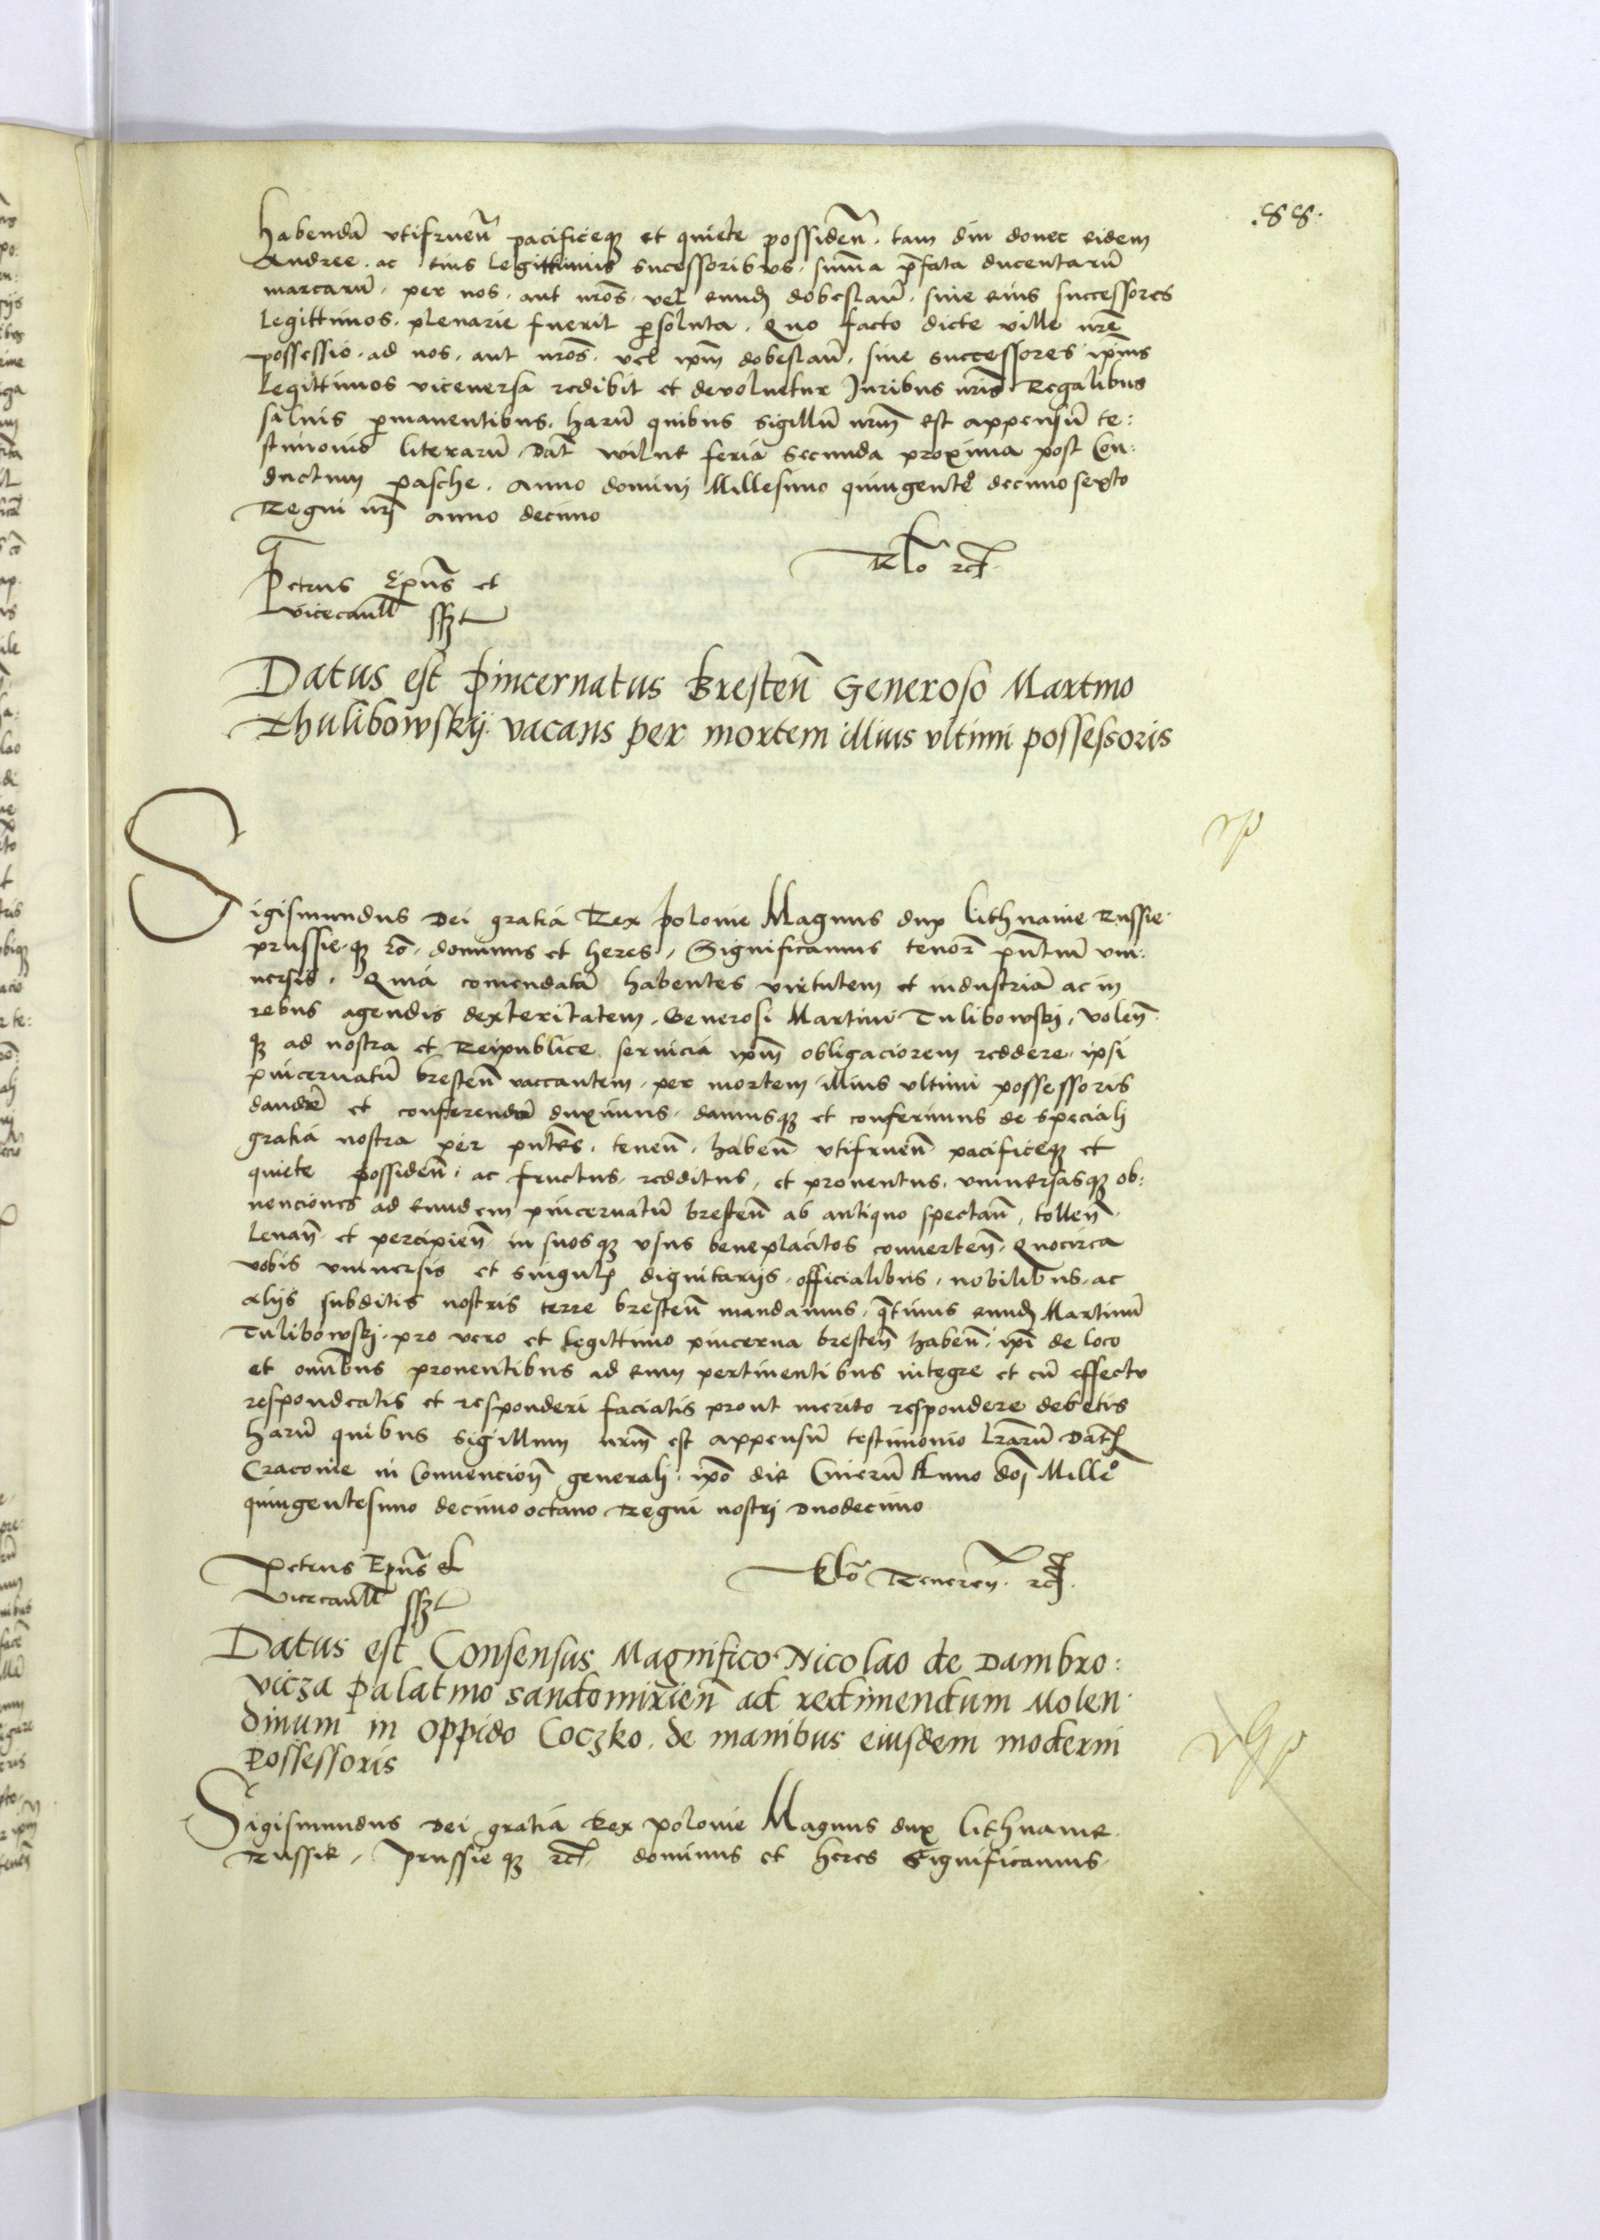 .88.
habendã vtifrueñ pacificeqꝫ et quiete possideñ. tam diu donec eidem
Andree. ac eius legittimis sucessoribus. suma p̃fata ducentarũ
marcarũ. per nos. aut nr̃os. vel eundẽ dobeslaũ. siue eius successores
legittimos. plenarie fuerit p̱soluta. Quo facto dicte ville nr̃e
possessio. ad nos. aut nr̃os. vel ip̃m dobeslaũ. siue successores ip̃ius
legittimos viceuersa redibit et deuoluetur Iuribus nr̃is Regalibus
saluis p̱manentibus. harũ quibus sigillũ nr̃m est appensũ te:
stimonio literarũ. Dat̃ wilne feria secunda proxima post Con:
ductum pasche. Anno domini Millesimo quingentẽo decimo sexto
Regni nr̃i anno decimo
Petrus Ep̃us et
vicecanll̃ sszt
Rl̃o rc̃t
Datus est pincernatus Bresteñ Generoso Martino
Thulibowskij. vacans per mortem illius vltimi possessoris
Sigismundus Dei gratia Rex polonie Magnus dux Lithuanie Russie.
prussie.qꝫ rc̃. dominus et heres, Significamus tenorẽ p̃ntiũ vni:
uersis. Quia comendatã habentes virtutem et industriã ac in
rebus agendis dexteritatem. Generosi Martini Tulibowskj, voleñ
qꝫ ad nostra et Reipublice seruicia ip̃m obligaciorem reddere. ipsi
pincernatũ bresteñ vaccantem. per mortem illius vltimi possessoris
dandũ et conferendũ duximus. damusqꝫ et conferimus de speciali
gratia nostra per p̃ntes. teneñ. habeñ vtifrueñ pacificeqꝫ et
quiete possideñ. ac fructus. redditus, et prouentus. vniuersasqꝫ ob:
uenciones ad eundem pincernatũ bresteñ ab antiquo spectañ, tolleñ
leuañ. et percipieñ in suosqꝫ vsus beneplacitos conuerteñ. Quocirca
vobis vniuersis et singulis dignitarijs. officialibus. nobilibus. ac
alijs subditis nostris terre bresteñ mandamus. q̃tinus eundẽ Martinũ
Tulibowskj. pro vero et legittimo pincerna bresteñ habeñ. ip̃i de loco
et omĩbus prouentibus ad eum pertinentibus integre et cũ effectu
respondeatis et responderi faciatis prout merito respondere debetis
harũ quibus sigillum nr̃m est appensũ testimonio lr̃arũ Dat̃
Cracouie in Conuencioñ generali. ip̃o die Cinerũ Anno dñi Millẽo
quingentesimo decimo octauo Regni nostri Duodecimo
Petrus Ep̃us et
Vicecanll̃ sszt
Rl̃o Reuereñ. rc̃
Datus est Consensus Magnifico Nicolao de Dambro:
vicza palatino sandomirieñ ad redimendum Molen
dinum in oppido Coczko. de manibus eiusdem moderni
possessoris
Sigismundus Dei gratia Rex polonie Magnus dux Lithuanie
Russie, Prussie qꝫ rc̃t. dominus et heres Significamus.